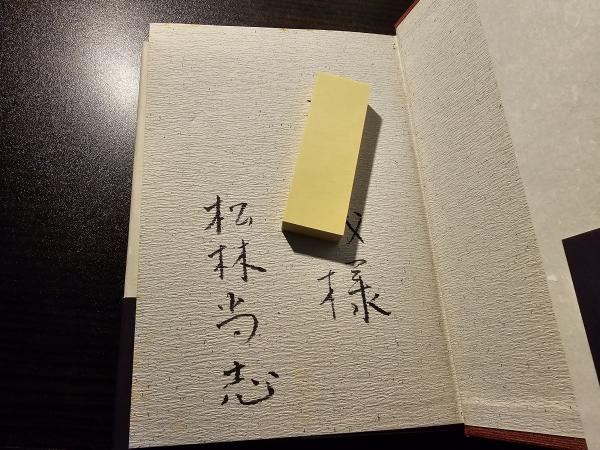 様
松林尚志